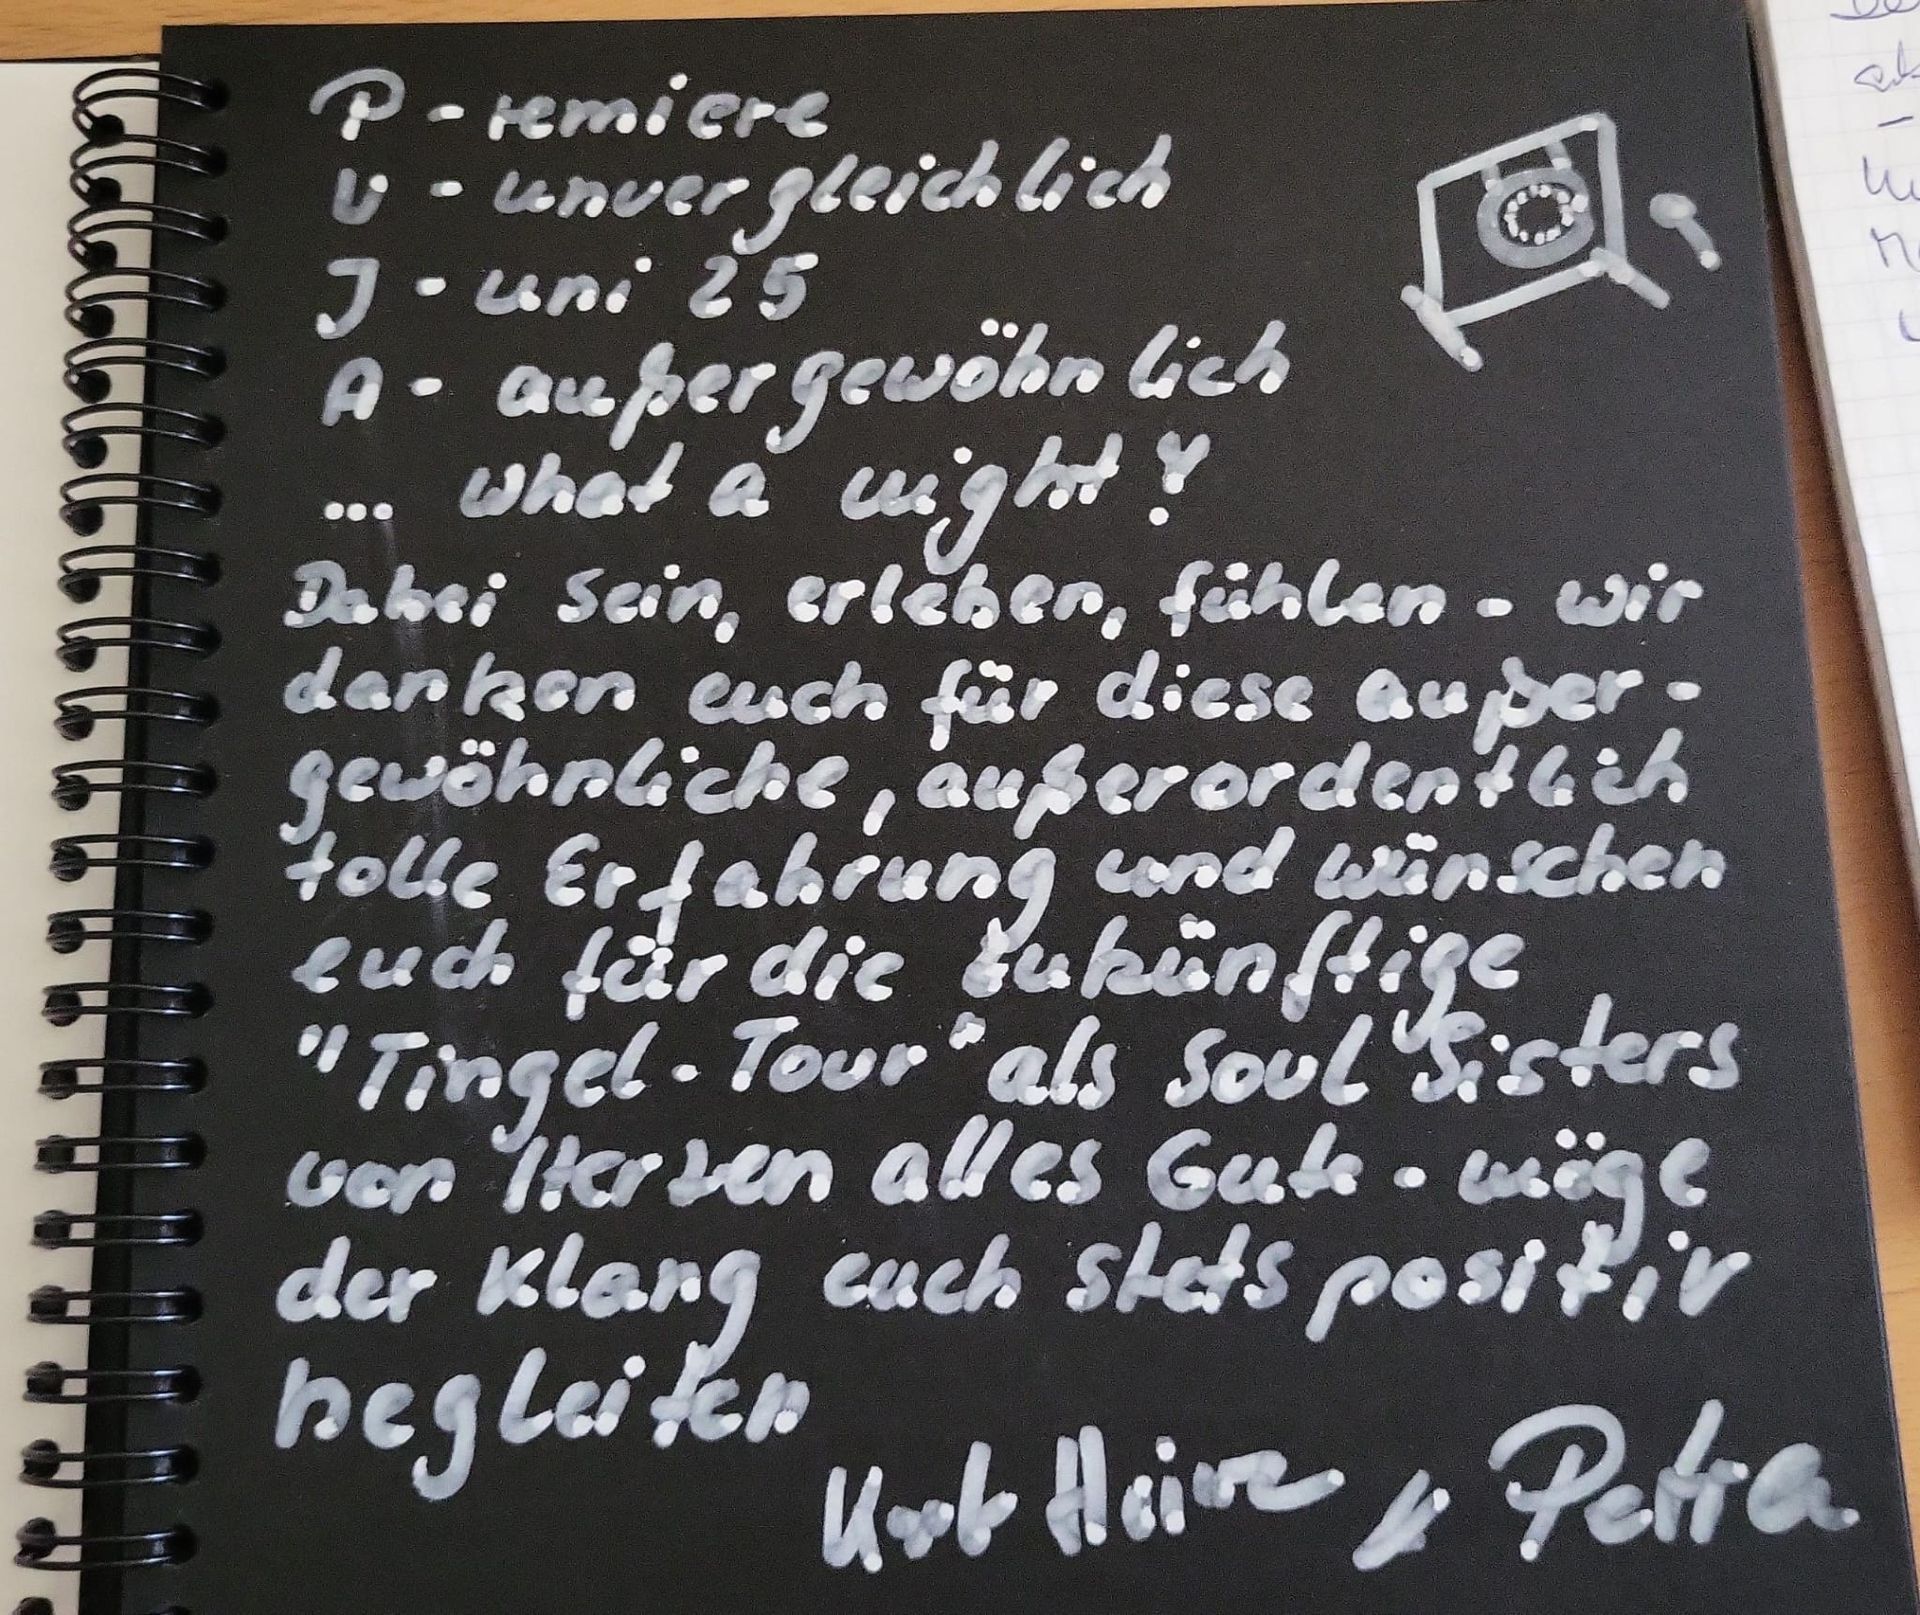 P - remiere
U - unvergleichlich
J - uni 25
A - außergewöhnlich
... what a night!
Dabei sein, erleben, fühlen - wir
danken euch für diese außer-
gewöhnliche, außerordentlich
tolle Erfahrung und wünschen
euch für die zukünftige
"Tingel-Tour" als Soul Sisters
von Herzen alles Gute - möge
der Klang euch stets positiv
begleiten
Petra